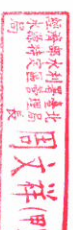 經濟部水利署臺北
水源特定區管理局
局長
周文祥甲